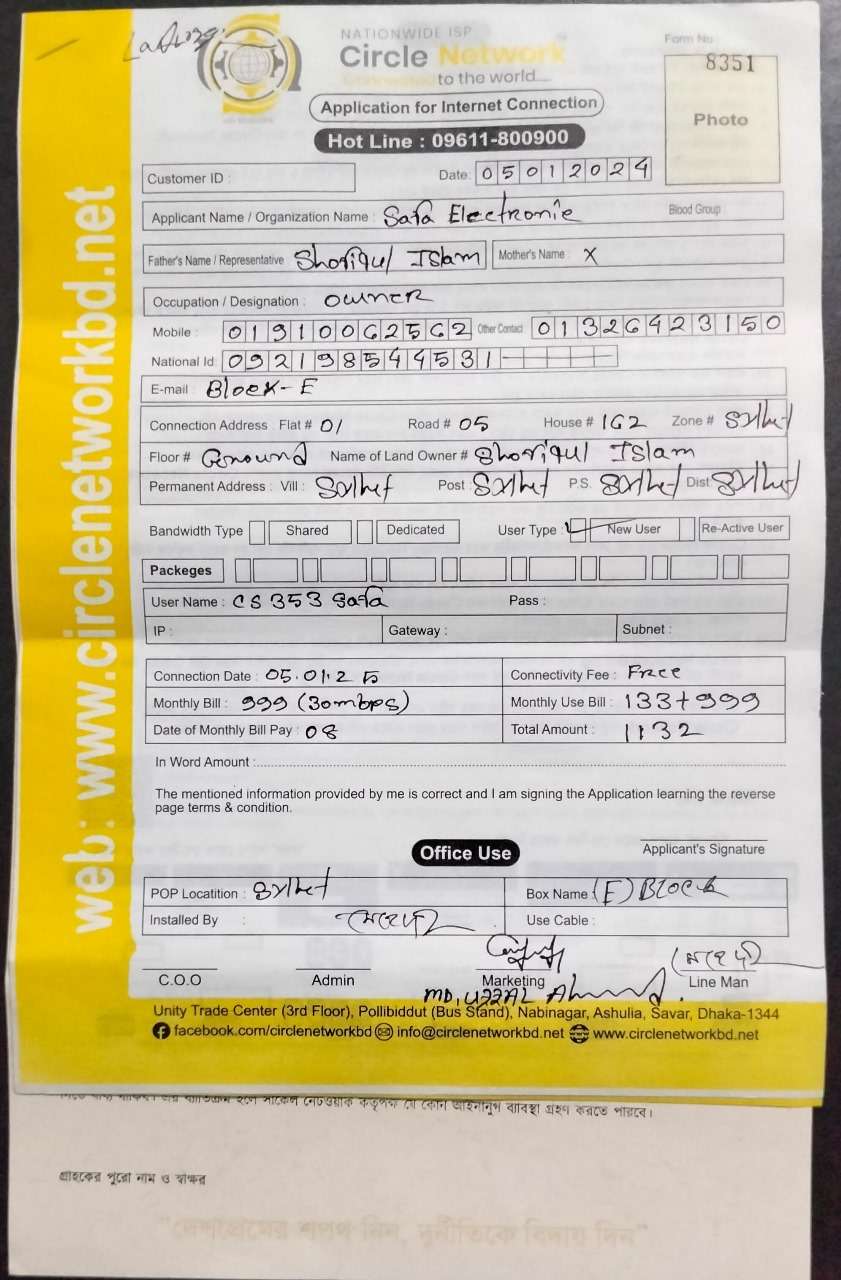 NATIONWIDE ISP
Circle Network
Connected to the world....
Form No :
8351
Photo
Application for Internet Connection
Hot Line : 09611-800900
Customer ID :
Date: 05012024
Applicant Name / Organization Name : Safa Electronic
Blood Group :
Father's Name / Representative Shofiqul Islam
Mother's Name : X
Occupation / Designation : owner
Mobile : 01910062562 Other Contact 01326423150
National Id: 092198544531
E-mail : Block-E
Connection Address : Flat # 01 Road # 05 House # 162 Zone # Sylhet
Floor # Ground Name of Land Owner # Shofiqul Islam
Permanent Address : Vill : Sylhet Post Sylhet P.S. Sylhet Dist: Sylhet
Bandwidth Type Shared Dedicated User Type : New User Re-Active User
Packeges
User Name : CS353 Safa Pass :
IP : Gateway : Subnet :
Connection Date : 05.01.25 Connectivity Fee : Free
Monthly Bill : 999 (30mbps) Monthly Use Bill : 133+999
Date of Monthly Bill Pay : 08 Total Amount : 1132
In Word Amount :
The mentioned information provided by me is correct and I am signing the Application learning the reverse
page terms & condition.
Office Use
Applicant's Signature
POP Locatition : Sylhet Box Name (E) Block
Installed By : মেহেদী Use Cable :
(মেহেদী)
C.O.O Admin Marketing Line Man
MD, UZZAL Ahmed.
Unity Trade Center (3rd Floor), Pollibiddut (Bus Stand), Nabinagar, Ashulia, Savar, Dhaka-1344
facebook.com/circlenetworkbd info@circlenetworkbd.net www.circlenetworkbd.net
web: www.circlenetworkbd.net
কর্তৃপক্ষ যে কোন আইনানুগ ব্যাবস্থা গ্রহণ করতে পারবে।
গ্রাহকের পুরো নাম ও স্বাক্ষর
"দেশপ্রেমের শপথ নিন, দুর্নীতিকে বিদায় দিন"